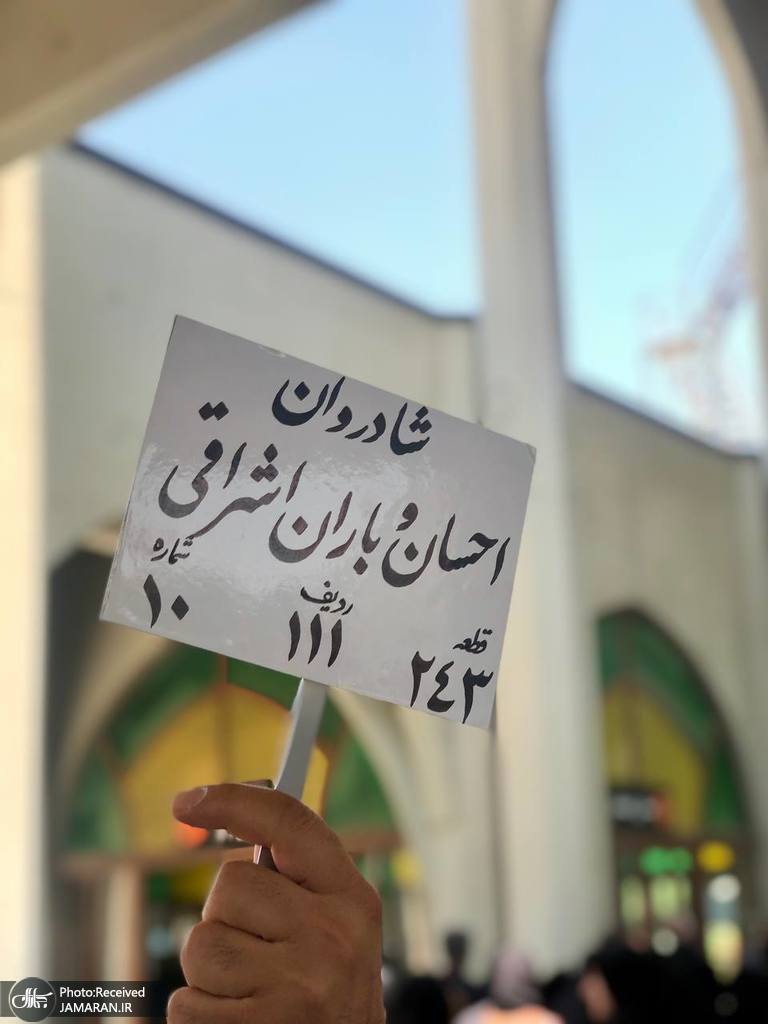 شادروان
احسان و باران اشراقی
قطعه ردیف شماره
۲٤۳ ۱۱۱ ۱۰
جماران
Photo:Received
JAMARAN.IR